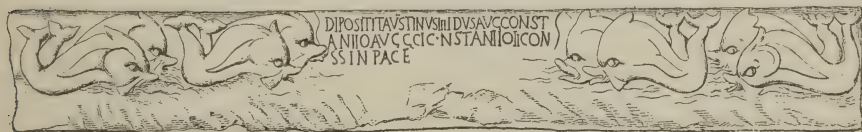 DIPOSITITAVSTINVSIIIIDVSAVGCONST
ANIIOAVGGCIC·NSTANIIOIICON
SSINPACE